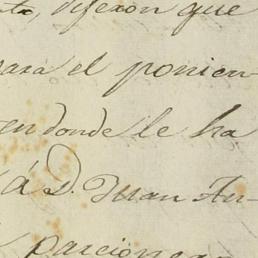 dijeron que
para el ponien-
en donde le ha
á D. Juan An-
parcioneros